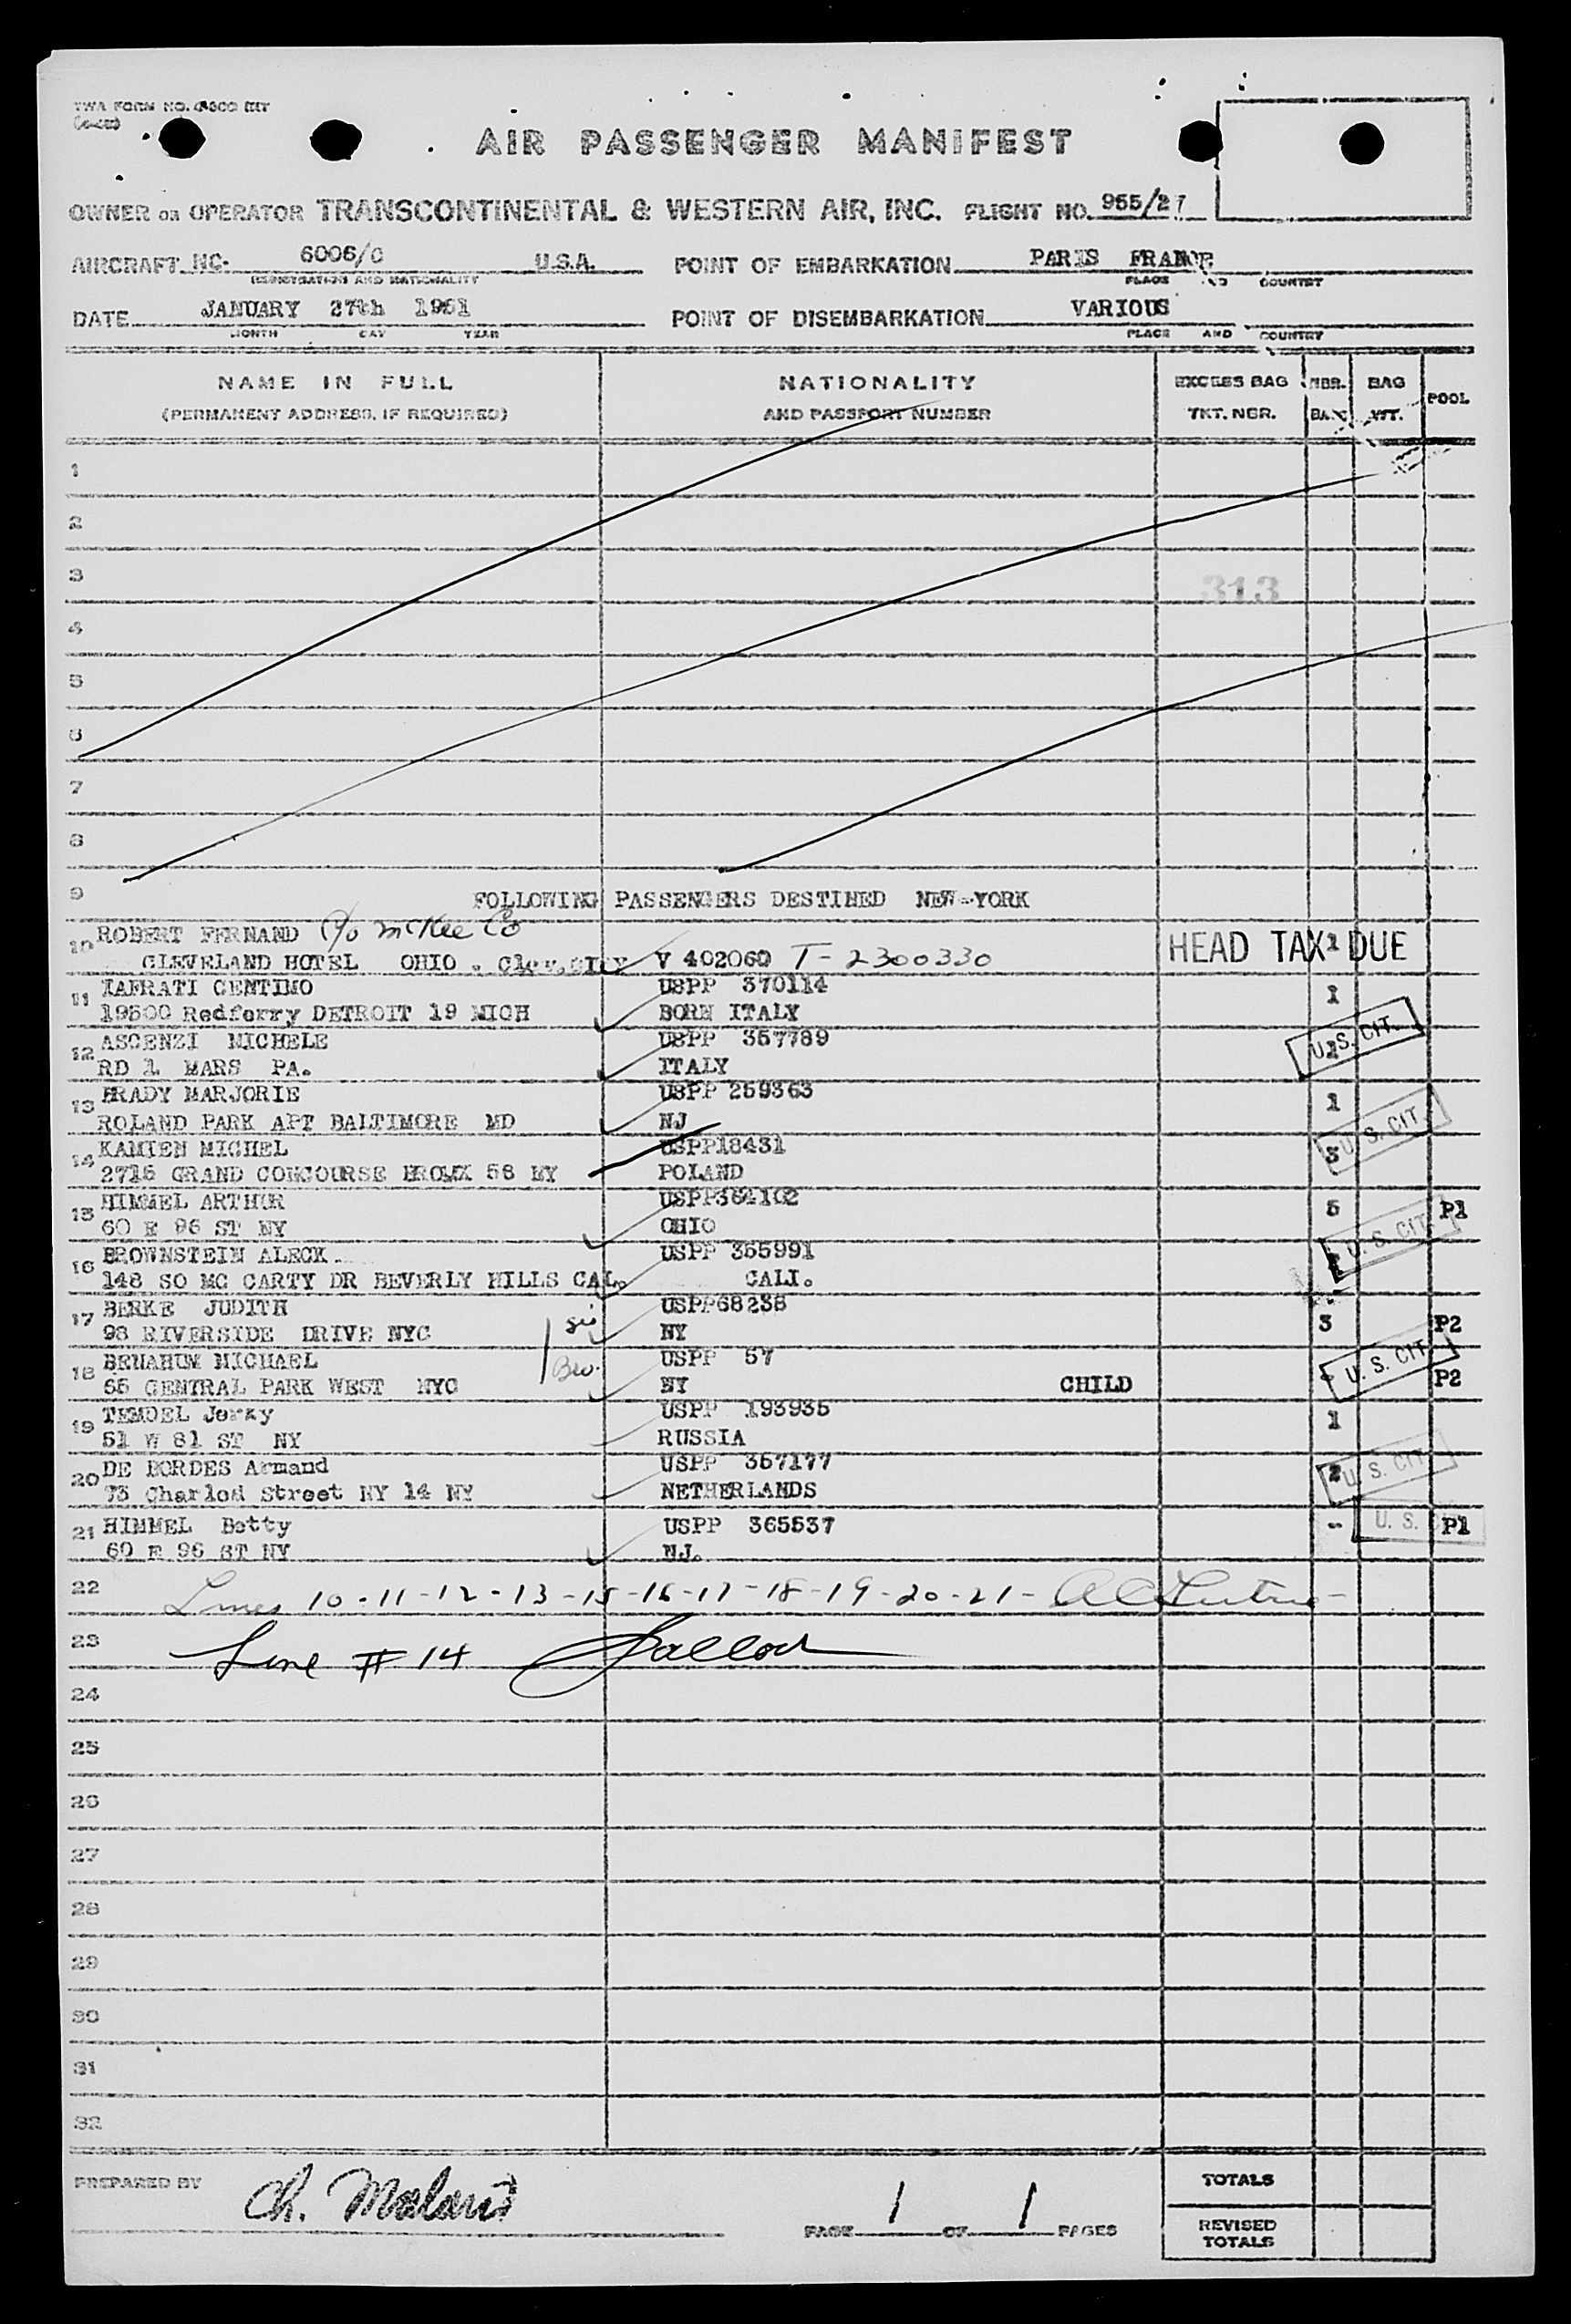 TWA FORM NO.
AIR PASSENGER MANIFEST
OWNER OR OPERATOR TRANSCONTINENTAL & WESTERN AIR, INC. FLIGHT NO. 965/27
AIRCRAFT NC- 6006/C U.S.A. POINT OF EMBARKATION PARIS FRANCE
REGISTRATION AND NATIONALITY PLACE AND COUNTRY
DATE JANUARY 27th 1951 POINT OF DISEMBARKATION VARIOUS
MONTH DAY YEAR PLACE AND COUNTRY
NAME IN FULL NATIONALITY EXCESS BAG NBR. BAG POOL
(PERMANENT ADDRESS, IF REQUIRED) AND PASSPORT NUMBER TKT. NBR. BAG WT.
1
2
3 313
4
5
6
7
8
9 FOLLOWING PASSENGERS DESTINED NEW-YORK
10 ROBERT FERNAND c/o McKee Co
CLEVELAND HOTEL OHIO . Clev. CITY V 402060 T-2300330 HEAD TAX DUE 1
11 GENTIMO USPP 370114 1
19500 Redferry DETROIT 19 MICH BORN ITALY
12 ASCENZI MICHELE USPP 357789 1 U. S. CIT.
RD 1 MARS PA. ITALY
13 BRADY MARJORIE USPP 259363 1
ROLAND PARK APT BALTIMORE MD NJ U. S. CIT.
14 KAMIEN MICHEL USPP18431 3
2715 GRAND CONCOURSE BRONX 58 NY POLAND
15 HIMMEL ARTHUR USPP364102 5 P1
60 E 96 ST NY OHIO U. S. CIT.
16 BROWNSTEIN ALECK USPP 365991
148 SO MC CARTY DR BEVERLY HILLS CAL. CALI.
17 BERKE JUDITH USPP68238
98 RIVERSIDE DRIVE NYC Sis NY 3 P2
18 BENAHUM MICHAEL Bro. USPP 57 - U. S. CIT.
65 CENTRAL PARK WEST NYC NY CHILD P2
19 TEMDEL Jerry USPP 193935 1
51 W 81 ST NY RUSSIA
20 DE BORDES Armand USPP 357177 2 U. S. CIT.
75 Street NY 14 NY NETHERLANDS
21 HIMMEL Betty USPP 365537 - U. S. P1
60 E 96 ST NY NJ.
22 Lines 10-11-12-13-15-16-17-18-19-20-21-
23 Line # 14
24
25
26
27
28
29
30
31
32
PREPARED BY Ch. PAGE 1 OF 1 PAGES TOTALS
REVISED TOTALS